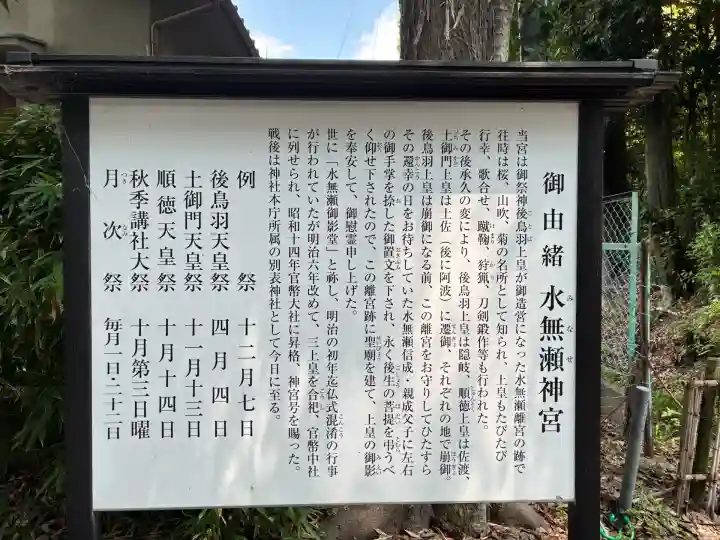 御由緒 水無瀬神宮
みなせ
当宮は御祭神後鳥羽上皇が御造営になった水無瀬離宮の跡で
往時は桜、山吹、菊の名所として知られ、上皇もたびたび
行幸、歌合せ、蹴鞠、狩猟、刀剣鍛作等も行われた。
その後承久の変により、後鳥羽上皇は隠岐、順徳上皇は佐渡、
土御門上皇は土佐(後に阿波)に遷御、それぞれの地で崩御。
後鳥羽上皇は崩御になる前、この離宮をお守りしてひたすら
その還幸の日をお待ちしていた水無瀬信成・親成父子に左右
の御手掌を捺した御置文を下され、永く後生の菩提を弔うべ
く仰せ下されたので、この離宮跡に聖廟を建て、上皇の御影
を奉安して、御慰霊申し上げた。
世に「水無瀬御影堂」と称し、明治の初年迄仏式混淆の行事
が行われていたが明治六年改めて、三上皇を合祀、官幣中社
に列せられ、昭和十四年官幣大社に昇格、神宮号を賜った。
戦後は神社本庁所属の別表神社として今日に至る。
例祭 十二月七日
後鳥羽天皇祭 四月四日
土御門天皇祭 十一月十三日
順徳天皇祭 十月十四日
秋季講社大祭 十月第三日曜
月次祭 毎月一日・二十二日
つきなみ